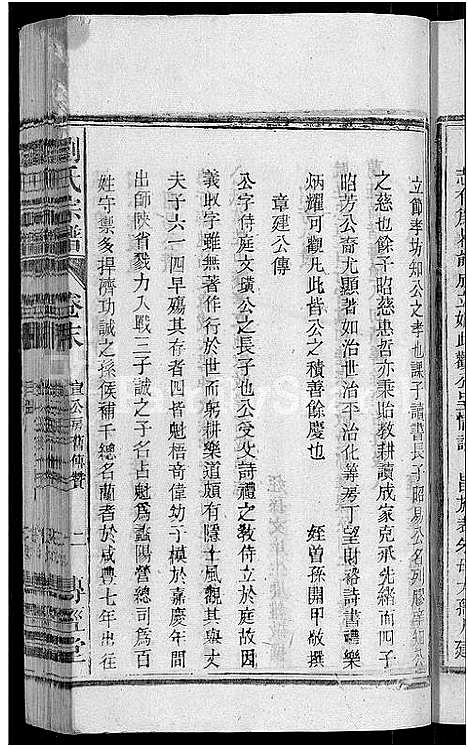 立節孝坊知公之孝也課子讀書長子昭易公名列膠庠知公
之慈也餘子昭慈惠哲亦秉貽教耕讀成家克承先緒而四子
昭芳公裔尤顯者如治世治平治化等房丁望財裕詩書禮樂
炳耀可觀凡此皆公之積善餘慶也　姪曾孫開甲敬撰
章建公傳
公字侍庭文璜公之長子也公受父詩禮之教侍立於庭故因
義取字雖無著作行於世而躬耕樂道頗有隱士風觀其與丈
夫子六一四早殤其存者四皆魁梧奇偉幼子模於嘉慶年間
出師陝省戮力入戰三子誠之子名占魁為益陽營總司為百
姓守禦多捍濟功誠之孫候補千總名蘭者於咸豐七年出征
劉氏宗譜
卷末
宣公房舊傳贊
二